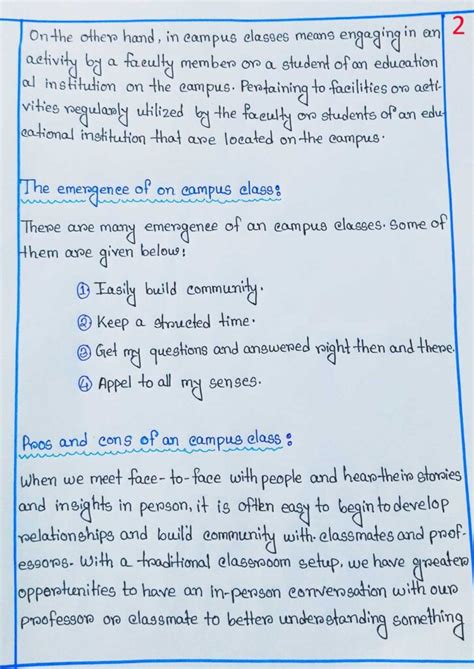 2
On the other hand, in campus classes means engaging in an
activity by a faculty member or a student of an education
al institution on the campus. Pertaining to facilities or acti-
vities regularly utilized by the faculty or students of an edu
cational institution that are located on the campus.
The emergence of on campus class:
There are many emergence of an campus classes. Some of
them are given below:
① Easily build community.
② Keep a structed time.
③ Get my questions and answered right then and there.
④ Appel to all my senses.
Pros and cons of an campus class:
When we meet face-to-face with people and hear their stories
and insights in person, it is often easy to begin to develop
relationships and build community with classmates and prof-
essors. With a traditional classroom setup, we have greater
opportunities to have an in-person conversation with our
professor or classmate to better understanding something